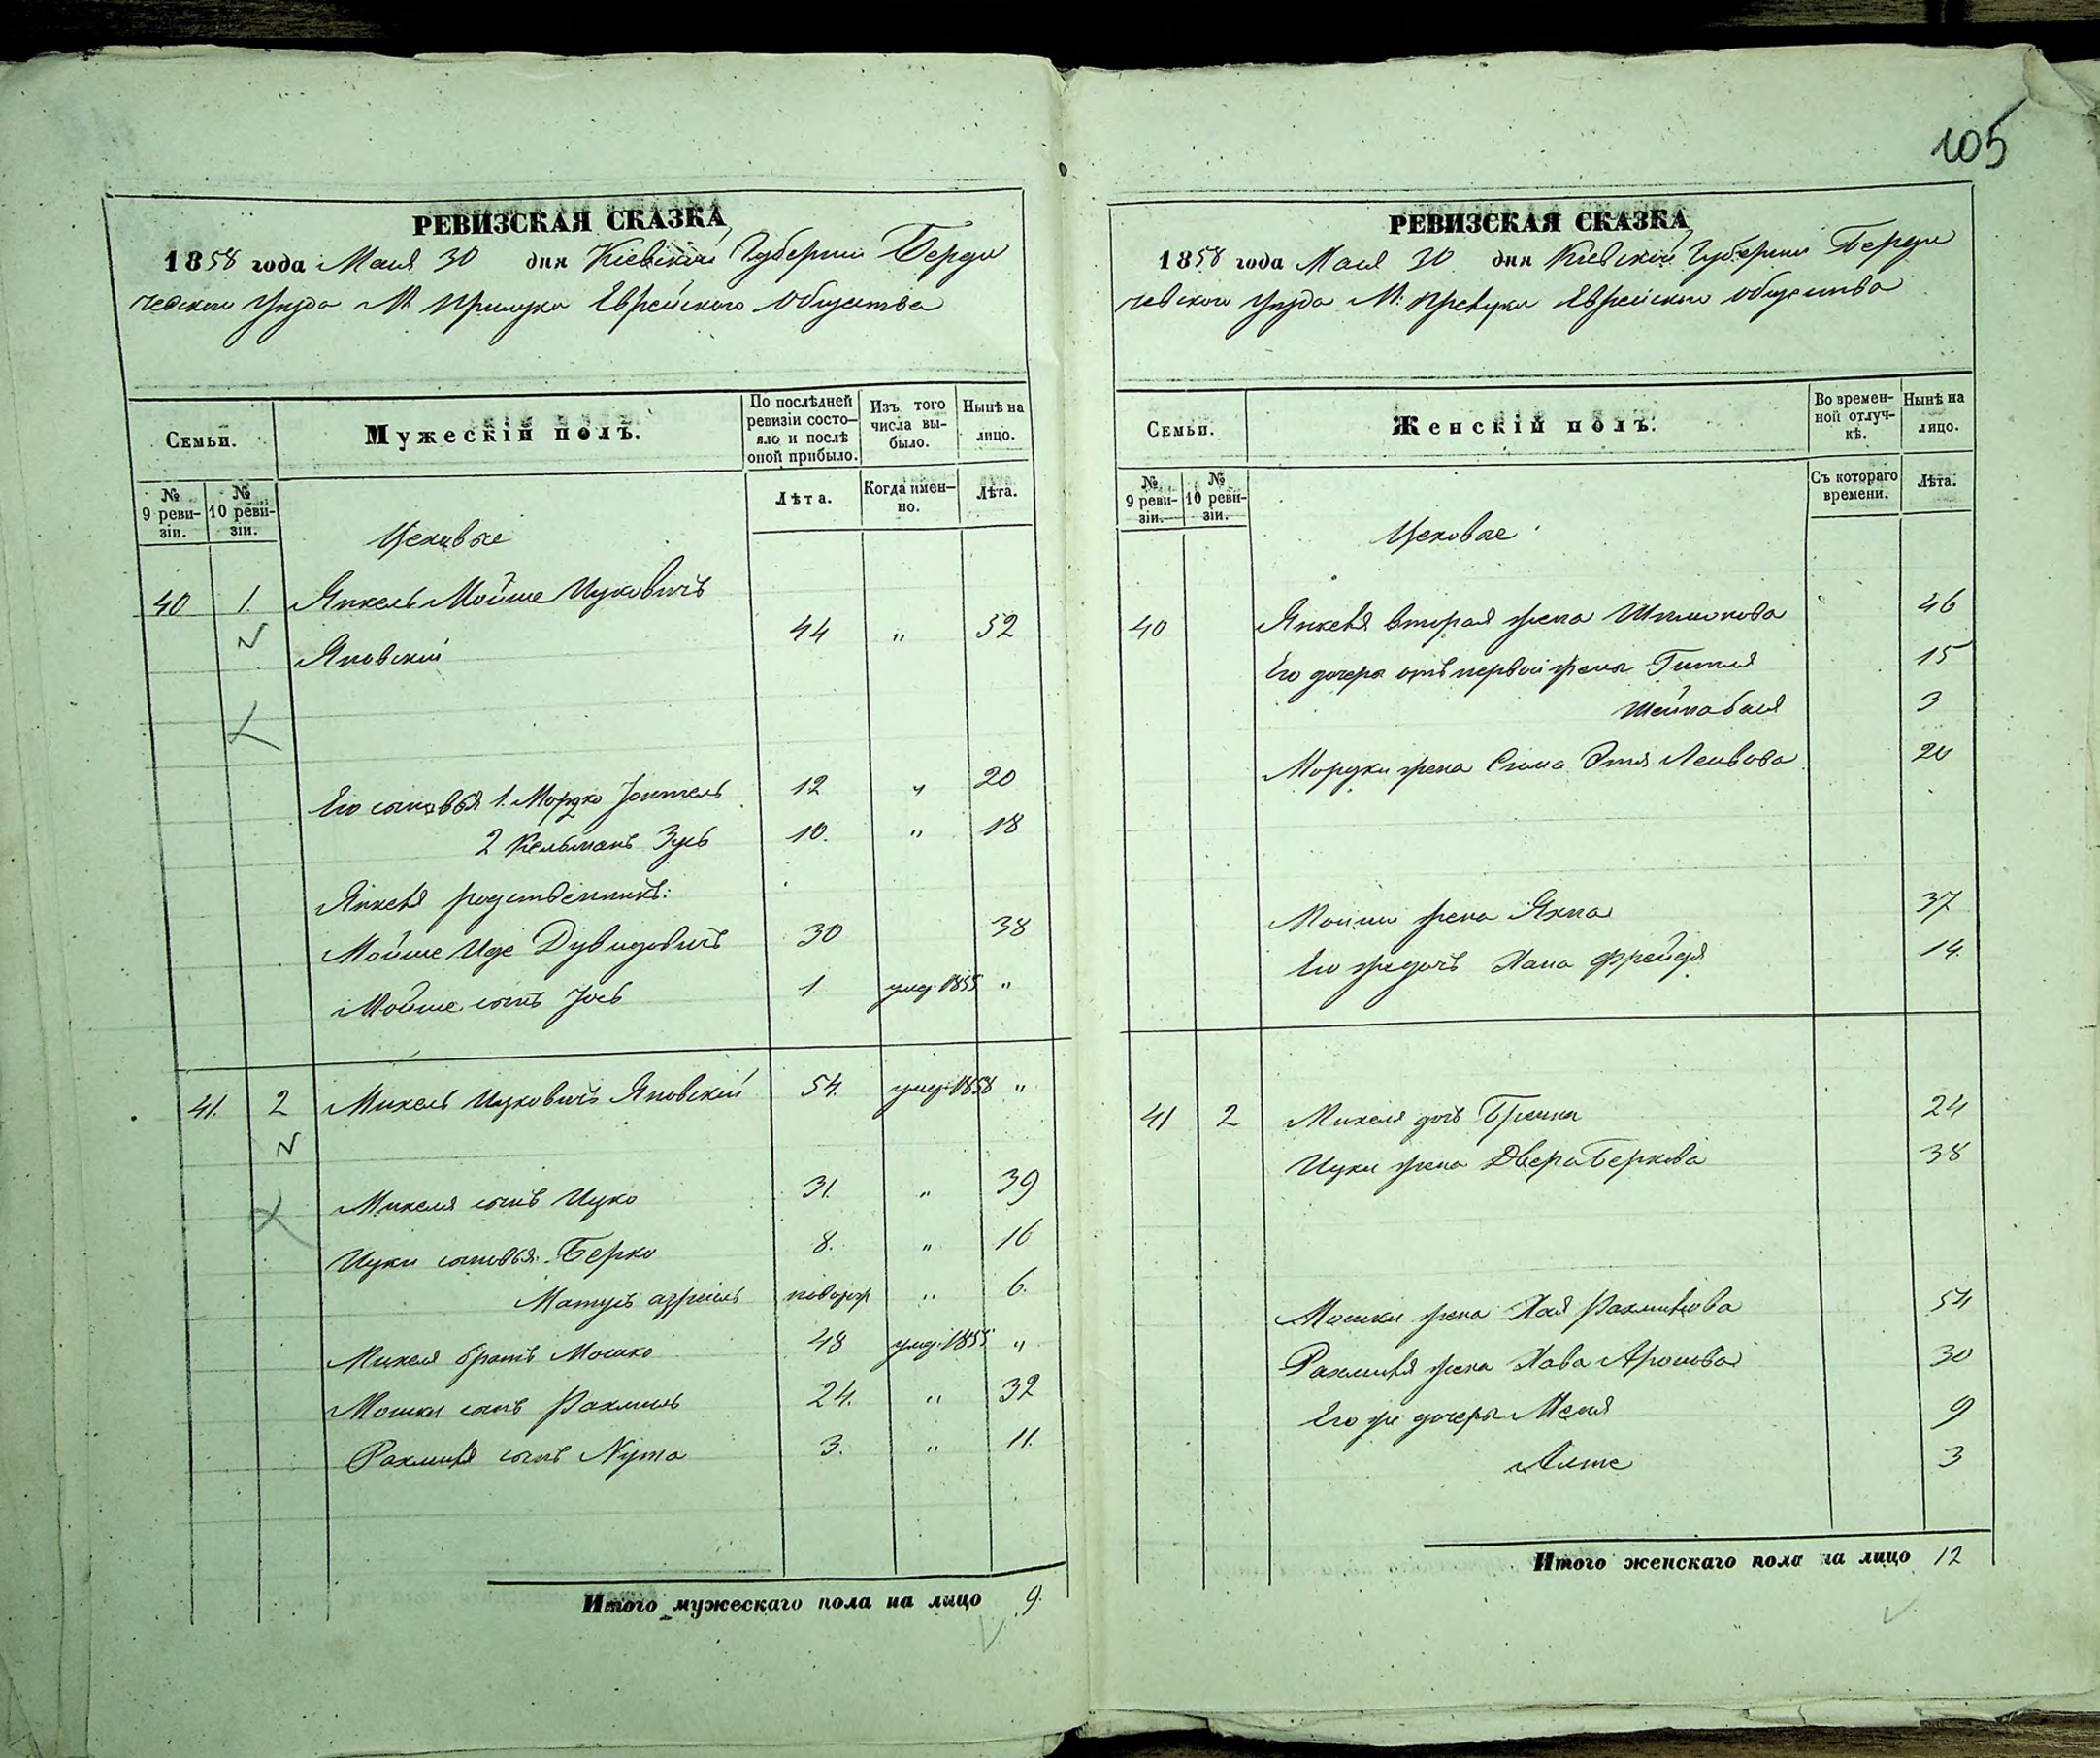 105
РЕВИЗСКАЯ СКАЗКА
1858 года Мая 30 дня Кіевской Губерніи Берди
чевскаго Уѣзда М. Прилуки Еврейского Общества
Семьи.
Мужескій полъ.
По послѣдней ревизіи состо-яло и послѣ оной прибыло.
Изъ того числа вы-было.
Нынѣ на лицо.
№ 9 реви-зіи.
№ 10 реви-зіи.
Лѣта.
Когда имен-но.
Лѣта.
Цеховые
40 1. Янкель Мойше Ицковичъ
Яновскій 44 " 52
Его сыновья 1. Мордко Зейтель 12 " 20
2 Кельманъ Зусь 10. " 18
Янкеля родственникъ:
Мойше Иде Дувидовичъ 30 38
Мойше сынъ Іось 1 умер. 1855 "
41. 2 Михель Ицковичъ Яновскій 54. умер. 1858 "
Михеля сынъ Ицко 31. " 39
Ицки сыновья: Берко 8. " 16
Матусъ новорож " 6.
Михеля братъ Мошко 48 умер. 1855 "
Мошки сынъ Рахмиль 24. " 32
Рахмиля сынъ Нута 3. " 11.
Итого мужескаго пола на лицо 9.
РЕВИЗСКАЯ СКАЗКА
1858 года Мая 30 дня Кіевской Губерніи Берди
чевского Уѣзда М. Прилуки Еврейского Общества
Семьи.
Женскій полъ.
Во времен-ной отлуч-кѣ.
Нынѣ на лицо.
№ 9 реви-зіи.
№ 10 реви-зіи.
Съ котораго времени.
Лѣта.
Цеховые
40 Янкеля вторая жена Шлиомова 46
Его дочери отъ первой жены Гитля 15
Шейнабася 3
Мордки жена Сима Этя Лейбова 20
Мойши жена Яхна 37
Его же дочь Хана Фрейдя 14.
41 2 Михеля дочь Брина 24
Ицки жена Двера Беркова 38
Мошки жена Хая Рахмилева 54
Рахмиля жена Хава Аронова 30
Его же дочери Меня 9
Алте 3
Итого женскаго пола на лицо 12